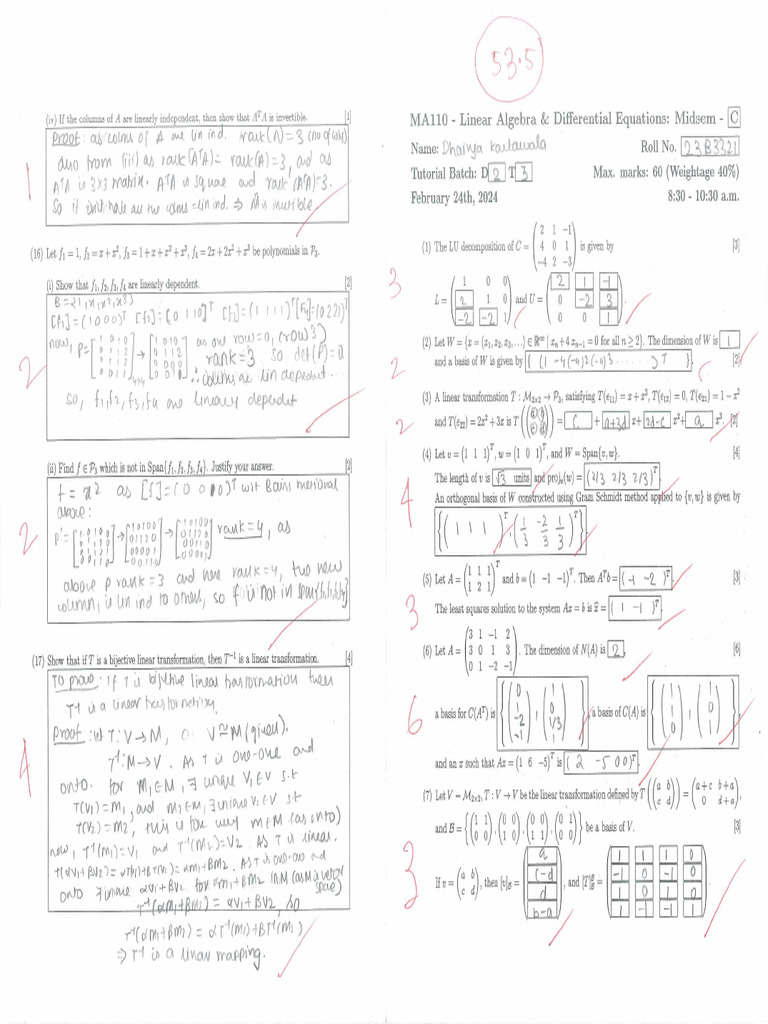 (iv) If the columns of A are linearly independent, then show that AᵀA is invertible. [1]
Proof: as colmns of A are lin ind. rank(A)=3 (no of cols)
also from (iii) as rank(AᵀA)= rank(A)=3, and as
AᵀA is 3×3 matrix. AᵀA is square and rank(AᵀA)=3.
1
(16) Let f₁ = 1, f₂ = x + x², f₃ = 1 + x + x² + x³, f₄ = 2x + 2x² + x³ be polynomials in P₃.
(i) Show that f₁, f₂, f₃, f₄ are linearly dependent. [2]
B = {1, x, x², x³}
[f₁]=(1 0 0 0)ᵀ [f₂]=(0 1 1 0)ᵀ [f₃]=(1 1 1 1)ᵀ [f₄]=(0 2 2 1)ᵀ
now, P=
as one row=0, (row3)
rank=3 so det(P)=0
∴ columns are lin dependent..
so, f₁, f₂, f₃, f₄ are linearly dependent
2
(ii) Find f ∈ P₃ which is not in Span{f₁, f₂, f₃, f₄}. Justify your answer. [2]
f = x² as [f]=(0 0 1 0)ᵀ
above:
P'=
rank=4, as
above P rank=3 and here rank=4, the new
column, is lin ind to others, so f is not in span
2
(17) Show that if T is a bijective linear transformation, then T⁻¹ is a linear transformation. [4]
To prove: If T is bijective linear transformation then
T⁻¹ is a linear transformation.
Proof: let T: V→M, V≅M (given).
T⁻¹: M→V. As T is one-one and
onto. for m₁∈M, ∃ unique v₁∈V s.t
T(v₁)=m₁, and m₂∈M, ∃ unique v₂∈V st
T(v₂)=m₂, this is for every m∈M (as onto)
now, T⁻¹(m₁)=v₁ and T⁻¹(m₂)=v₂. As T is linear.
T(αv₁+βv₂)=αT(v₁)+βT(v₂)=αm₁+βm₂. As T is one-one and
onto ∃ unique αv₁+βv₂ for αm₁+βm₂ in M (as M is vector
space)
T⁻¹(αm₁+βm₂) = αv₁+βv₂, so
T⁻¹(αm₁+βm₂) = αT⁻¹(m₁)+βT⁻¹(m₂)
⇒ T⁻¹ is a linear mapping.
4
53.5
MA110 - Linear Algebra & Differential Equations: Midsem - C
Name: Roll No. 23B3321
Tutorial Batch: D 2 T 3 Max. marks: 60 (Weightage 40%)
February 24th, 2024 8:30 - 10:30 a.m.
(1) The LU decomposition of C = (2 1 -1; 4 0 1; -4 2 -3) is given by [3]
L = (1 0 0; 2 1 0; -2 -2 1) and U = (2 1 -1; 0 -2 3; 0 0 1).
3
(2) Let W = {x = (x₁, x₂, x₃, ...) ∈ ℝ^∞ | xₙ + 4xₙ₋₁ = 0 for all n ≥ 2}. The dimension of W is 1
and a basis of W is given by { (1 -4 (-4)² (-4)³ ......)ᵀ }. [2]
2
(3) A linear transformation T : M₂ₓ₂ → P₃, satisfying T(e₁₁) = x + x³, T(e₁₂) = 0, T(e₂₁) = 1 - x²
and T(e₂₂) = 2x² + 3x is T((a b; c d)) = c + a+3d x + 2d-c x² + a x³. [2]
2
(4) Let v = (1 1 1)ᵀ, w = (1 0 1)ᵀ, and W = Span{v, w}. [4]
The length of v is √3 units and projᵥ(w) = (2/3 2/3 2/3)ᵀ
An orthogonal basis of W constructed using Gram Schmidt method applied to {v, w} is given by
{(1 1 1)ᵀ, (1/3 -2/3 1/3)ᵀ}.
4
(5) Let A = (1 1 1; 1 2 1)ᵀ and b = (1 -1 -1)ᵀ. Then Aᵀb = (-1 -2)ᵀ. [3]
The least squares solution to the system Ax = b is x̂ = (1 -1)ᵀ.
3
(6) Let A = (3 1 -1 2; 3 0 1 3; 0 1 -2 -1). The dimension of N(A) is 2. [6]
a basis for C(Aᵀ) is a basis of C(A) is
and an x such that Ax = (1 6 -5)ᵀ is (2 -5 0 0)ᵀ.
6
(7) Let V = M₂ₓ₂, T : V → V be the linear transformation defined by T((a b; c d)) = (a+c b+a; 0 d+a),
and B = {(1 1; 0 0), (0 0; 1 0), (0 0; 1 1), (0 1; 0 0)} be a basis of V. [3]
If v = (a b; c d), then [v]_B = (a; c-d; d; b-a), and [T]_B^B = (1 1 1 0; -1 0 -1 0; 1 0 1 0; 1 -1 -1 1)
3